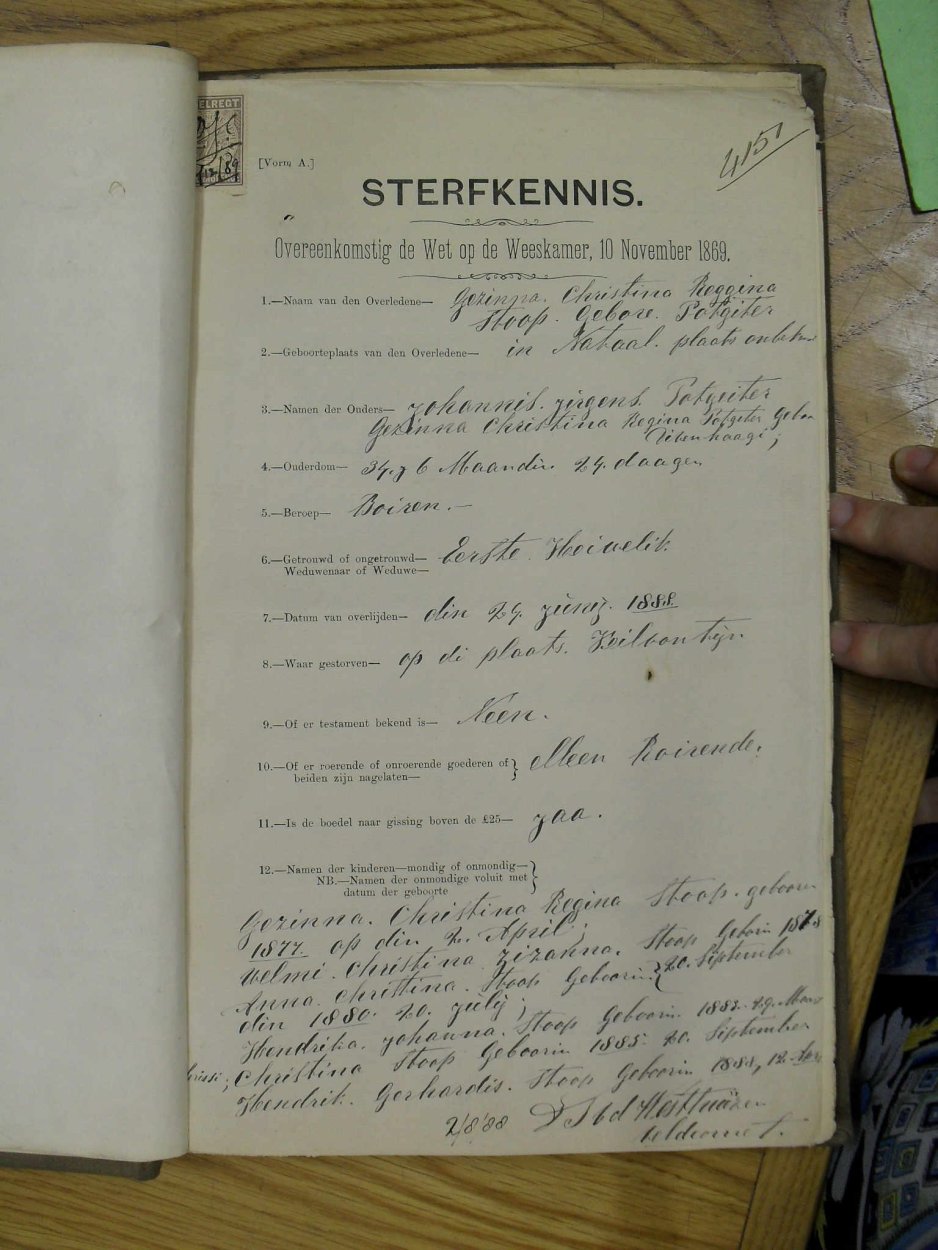 ELREGT
12/89
[Vorm A.]
4151
STERFKENNIS.
Overeenkomstig de Wet op de Weeskamer, 10 November 1869.
1.—Naam van den Overledene— Gezinna. Christina Reggina
Stoop. Gebore. Potgiter
2.—Geboorteplaats van den Overledene— in Nataal. plaats
3.—Namen der Ouders— Johannis. Jirgens. Potgeiter
Gezinna Christina Regina Potgeter
4.—Ouderdom— 34. J 6 Maandin 24. daagen
5.—Beroep— Boiren.—
6.—Getrouwd of ongetrouwd— Eerste. Hoiuelik
Weduwenaar of Weduwe—
7.—Datum van overlijden— din 24. Junij. 1888
8.—Waar gestorven— op di plaats.
9.—Of er testament bekend is— Neen.
10.—Of er roerende of onroerende goederen of } Alleen Roirende.
beiden zijn nagelaten—
11.—Is de boedel naar gissing boven de £25— Jaa.
12.—Namen der kinderen—mondig of onmondig— }
NB.—Namen der onmondige voluit met
datum der geboorte
Gezinna. Christina Regina Stoop. gebooren
1877. op din 2. April;
Welmi. Christina Zizanna. Stoop Geborin 1878
Anna Christina. Stoop Geboorin } 20. September
din 1880. 20. Julij;
Hendrika. Johanna. Stoop Geboorin 1883. 29.
Christina Stoop Geboorin 1885. 20. September
Hendrik. Gerhardis. Stoop Geboorin 1888, 12.
2/8/88